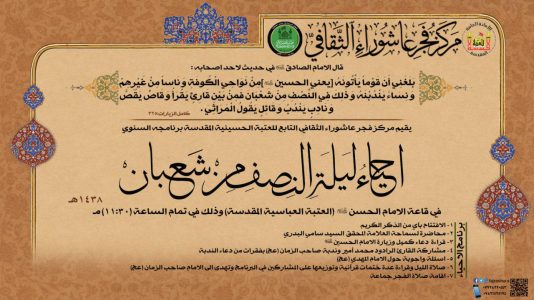 مركز فجر عاشوراء الثقافي
قال الامام الصادق في حديث لاحد اصحابه :
بلغني أن قوما يأتونه [يعني الحسين] من نواحي الكوفة و ناسا من غيرهم
و نساء يندبنه و ذلك في النصف من شعبان فمن بين قارئ يقرأ و قاص يقص
و نادب يندب و قائل يقول المراثي .
كامل الزيارات: ٣٢٥
يقيم مركز فجر عاشوراء الثقافي التابع للعتبة الحسينية المقدسة برنامجه السنوي
احياء ليلة النصف من شعبان
١٤٣٨هـ
في قاعة الامام الحسن (العتبة العباسية المقدسة) وذلك في تمام الساعة (١١:٣٠) مـ
برنامج الاحياء
١- الافتتاح بآي من الذكر الكريم
٢- محاضرة لسماحة العلامة المحقق السيد سامي البدري
٣- قراءة دعاء كميل وزيارة الامام الحسين
٤- مشاركة القارئ الرادود محمد أمير وندبة صاحب الزمان (عج) بفقرات من دعاء الندبة
٥- اسئلة واجوبة حول الامام المهدي (عج)
٦- صلاة الليل وقراءة عدة ختمات قرآنية وتوزيعها على المشاركين في البرنامج وتهدى الى الامام صاحب الزمان (عج)
٧- اقامة صلاة الفجر جماعة